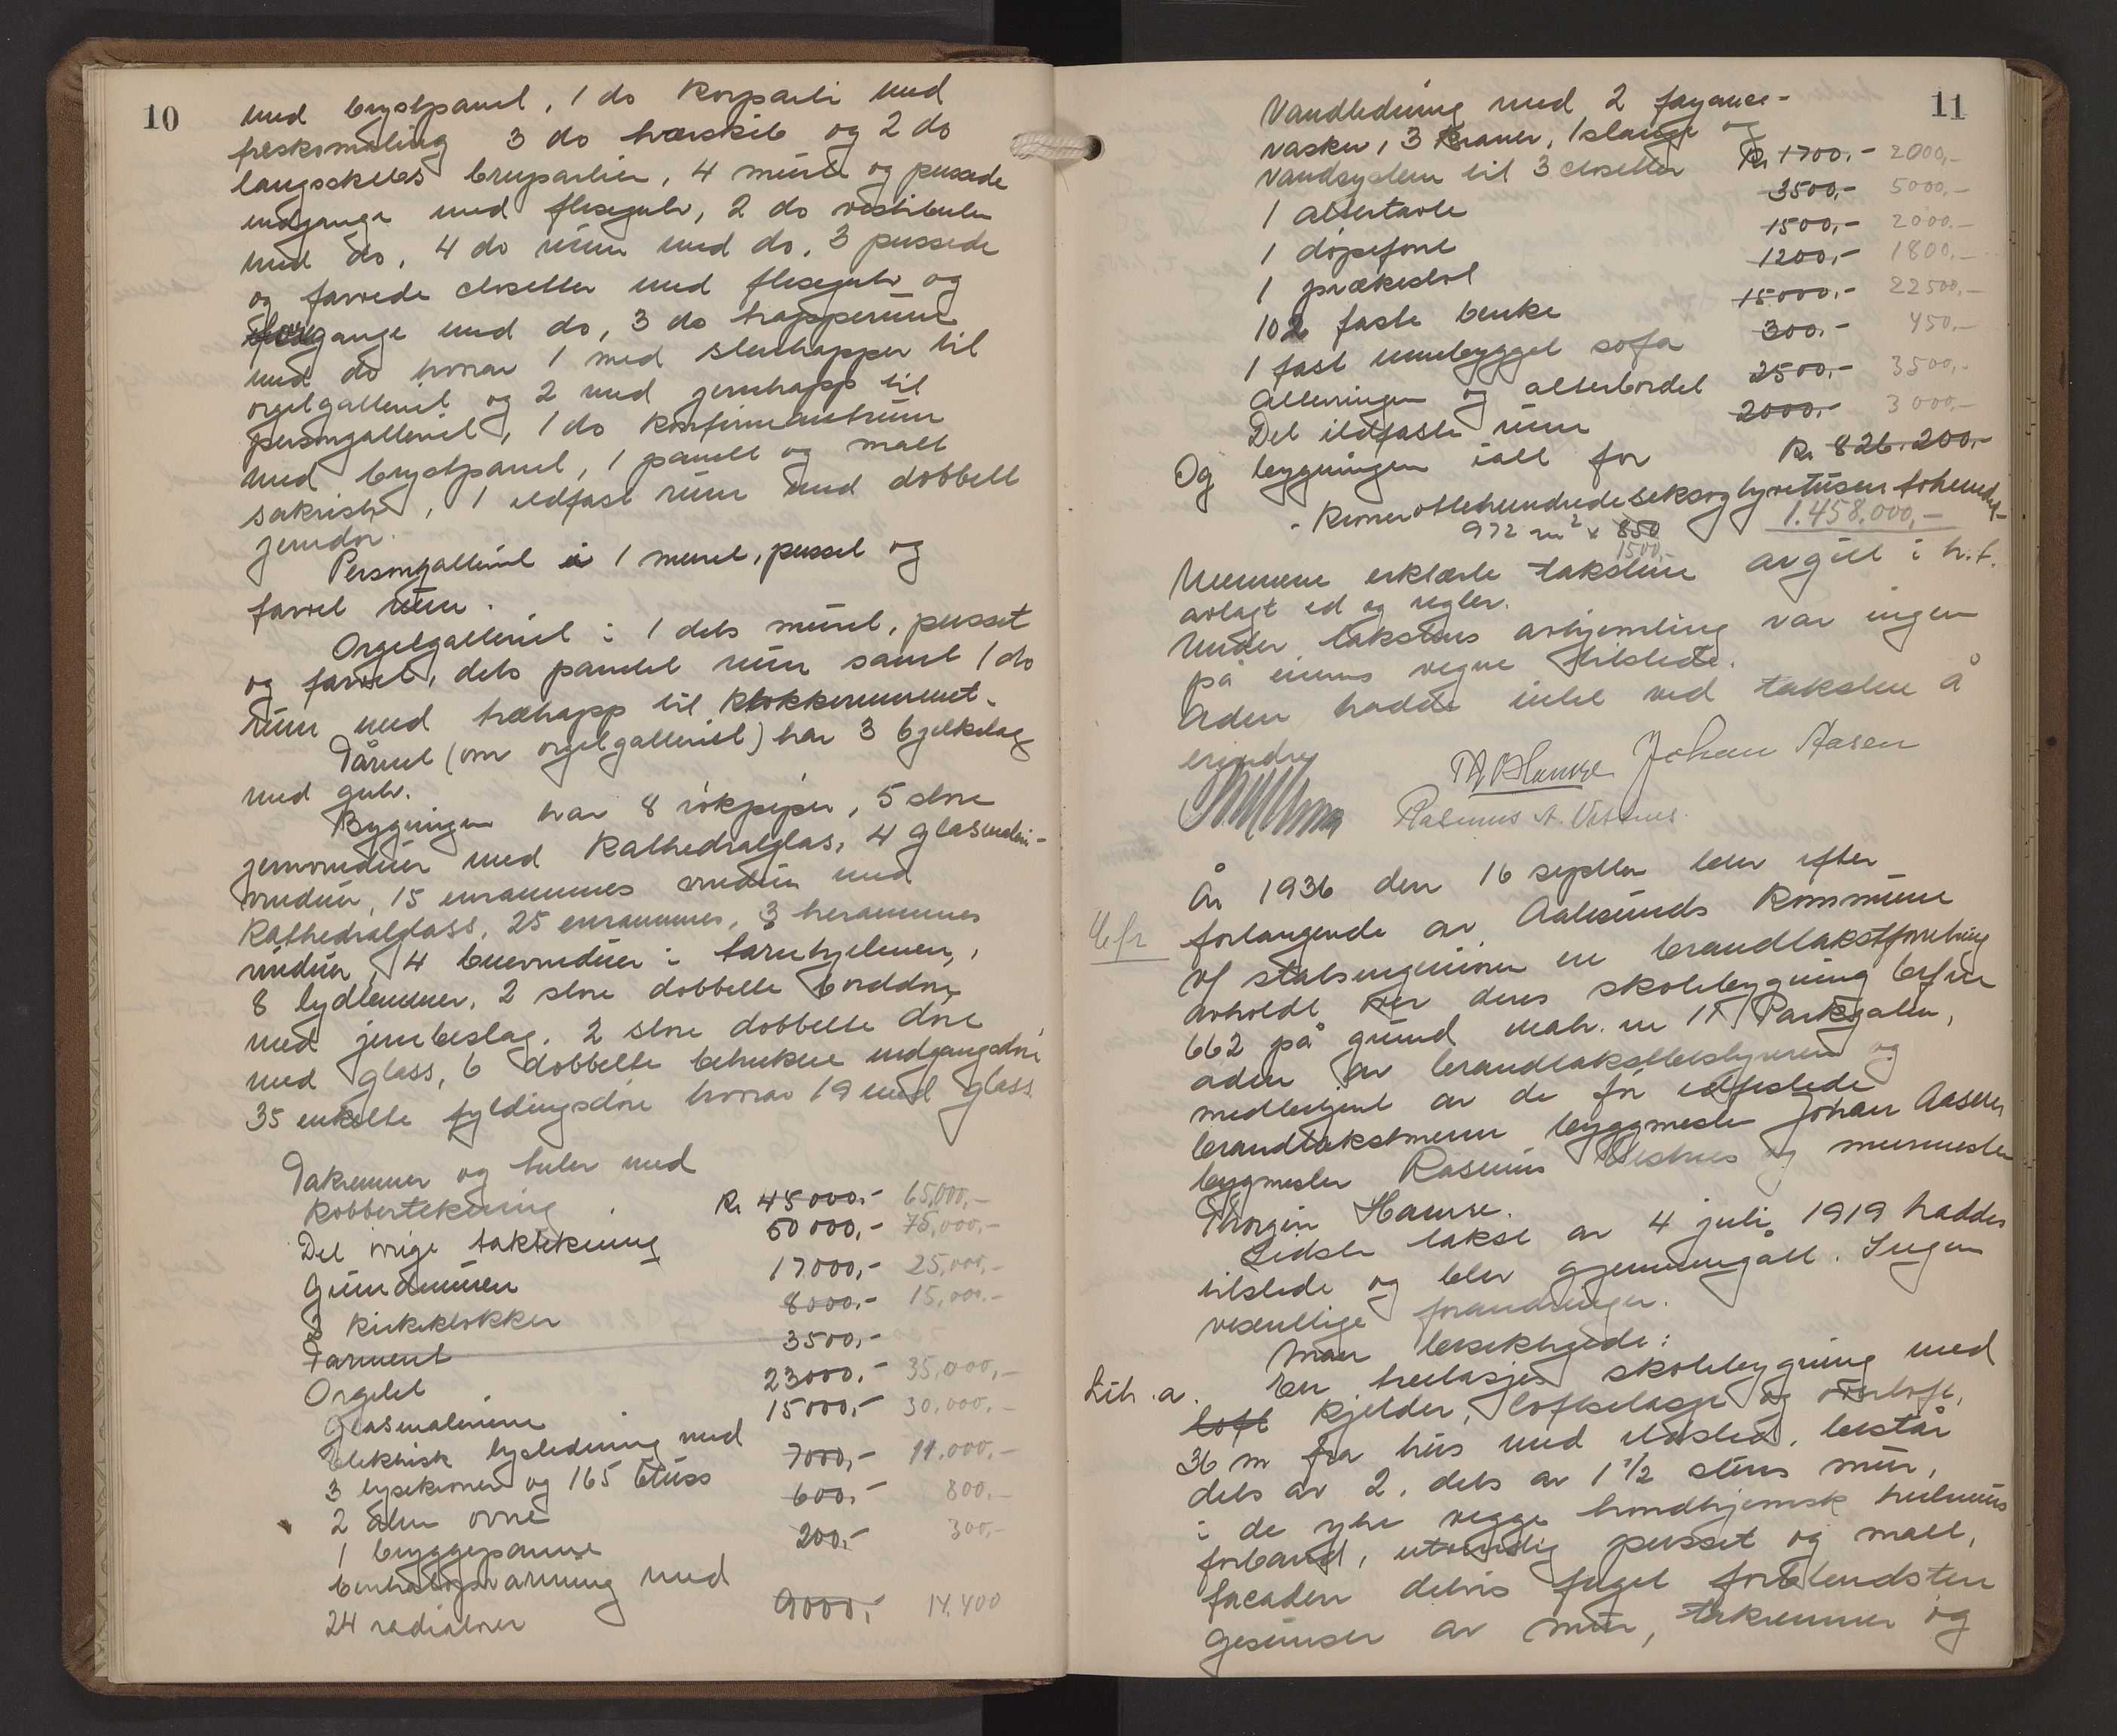 10
med brystpanel, 1 do korparti med
freskomaling 3 do tverskib og 2 do
langskibs bueparlier, 4 murte og pussede
indgange med flisegulv, 2 do vestibuler
med do, 4 do rum med do, 3 pussede
og farvede closetter med flisegulv og
forgange med do, 3 do trapperum
med do hvorav 1 med stentrapper til
orgelgalleriet og 2 med jerntrapp til
persongalleriet, 1 do konfirmantrum
med brystpanel, 1 panelt og malt
sakristi, 1 ildfast rum med dobbelt
jerndør.
Persongalleriet er 1 muret, pusset og
farvet rum.
Orgelgalleriet i 1 dels muret, pusset
og farvet, dels panelet rum samt 1 do
rum med trætrapp til klokkerummet.
Tårnet (over orgelgalleriet) har 3 bjelkelag
med gulv.
Bygningen har 8 rökpiper, 5 store
jernvinduer med Kathedralglas, 4 glasmaleri-
vinduer, 15 enrammes vinduer med
Kathedralglass, 25 enrammes, 3 torammes
vinduer, 4 buevinduer i tårnhjelmen,
8 lydlemmer, 2 store dobbelte borddøre
med jernbeslag, 2 store dobbelte døre
med glass, 6 dobbelte betrukne indgangsdøre
35 enkelte fyldingsdøre hvorav 19 med glass.
Takrenner og huler med
Kobbertekning Kr 45000.- 65,000,-
Det övrige taktekning 50000,- 75,000,-
Grundmuren 17000,- 25,000,-
3 kirkeklokker 8000,- 15,000.-
Tårnuret 3500,-
Orgelet 23000,- 35,000,-
Glasmaleriene 15000,- 30.000,-
Elektrisk lysledning med
3 lysekroner og 165 bluss 7000,- 11.000,-
2 alm ovne 600,- 800.-
1 bryggepanne 200,- 300,-
Centralopvarmning med
24 radiatorer 9000,- 14.400
11
Vandledning med 2 fayance-
vasker, 3 Kraner, 1 slange og
vandsystem til 3 closetter Kr 1700.- 2000,-
1 altertavle 3500,- 5000,-
1 döpefont 1500,- 2000.-
1 prækestol 1200,- 1800,-
102 faste benke 15000,- 22500,-
1 fast innebygget sofa 300.- 450,-
Alterringen og alterbordet 2500,- 3500,-
Det ildfaste rum 2000.- 3000,-
Og bygningen ialt for Kr 826.200,-
- Kroner ottehundredeseksogtyvetusen tohundrede-
972 m² x 850 1.458.000,-
1500,-
Mennene erklærte taksten avgitt i h.t.
avlagt ed og regler.
Under takstens avhjemling var ingen
på eierens vegne tilstede.
Aden hadde intet ved taksten å
erindre
Th O Hamre Johan Aasen
Rasmus A. Vestnes.
År 1936 den 16 septbr blev efter
Cfr
forlangende av Aalesunds Kommune
v/ stadsingeniøren en brandtakstforretning
avholdt over deres skolebygning brfnr
662 på grund matr. nr 11 Parkgaten,
aden av brandtakstbestyreren og
medbetjent av de før edfæstede
brandtakstmenn byggmester Johan Aasen
bygmester Rasmus Vestnes og murmester
Thorgeir Hamre.
Sidste takst av 4 juli 1919 haddes
tilstede og blev gjennemgått. Ingen
vesentlige forandringer.
Man besiktigede:
Litr. a. En treetasjes skolebygning med
loft kjelder, loftsetasje og overloft,
36 m fra hus med ildsted, består
dels av 2, dels av 1 1/2 stens mur,
i de ytre vegge trondhjemsk hulmurs
forband, utvendig pusset og malt,
facaden delvis fuget forblendsten
gesimser av mur, takrenner og